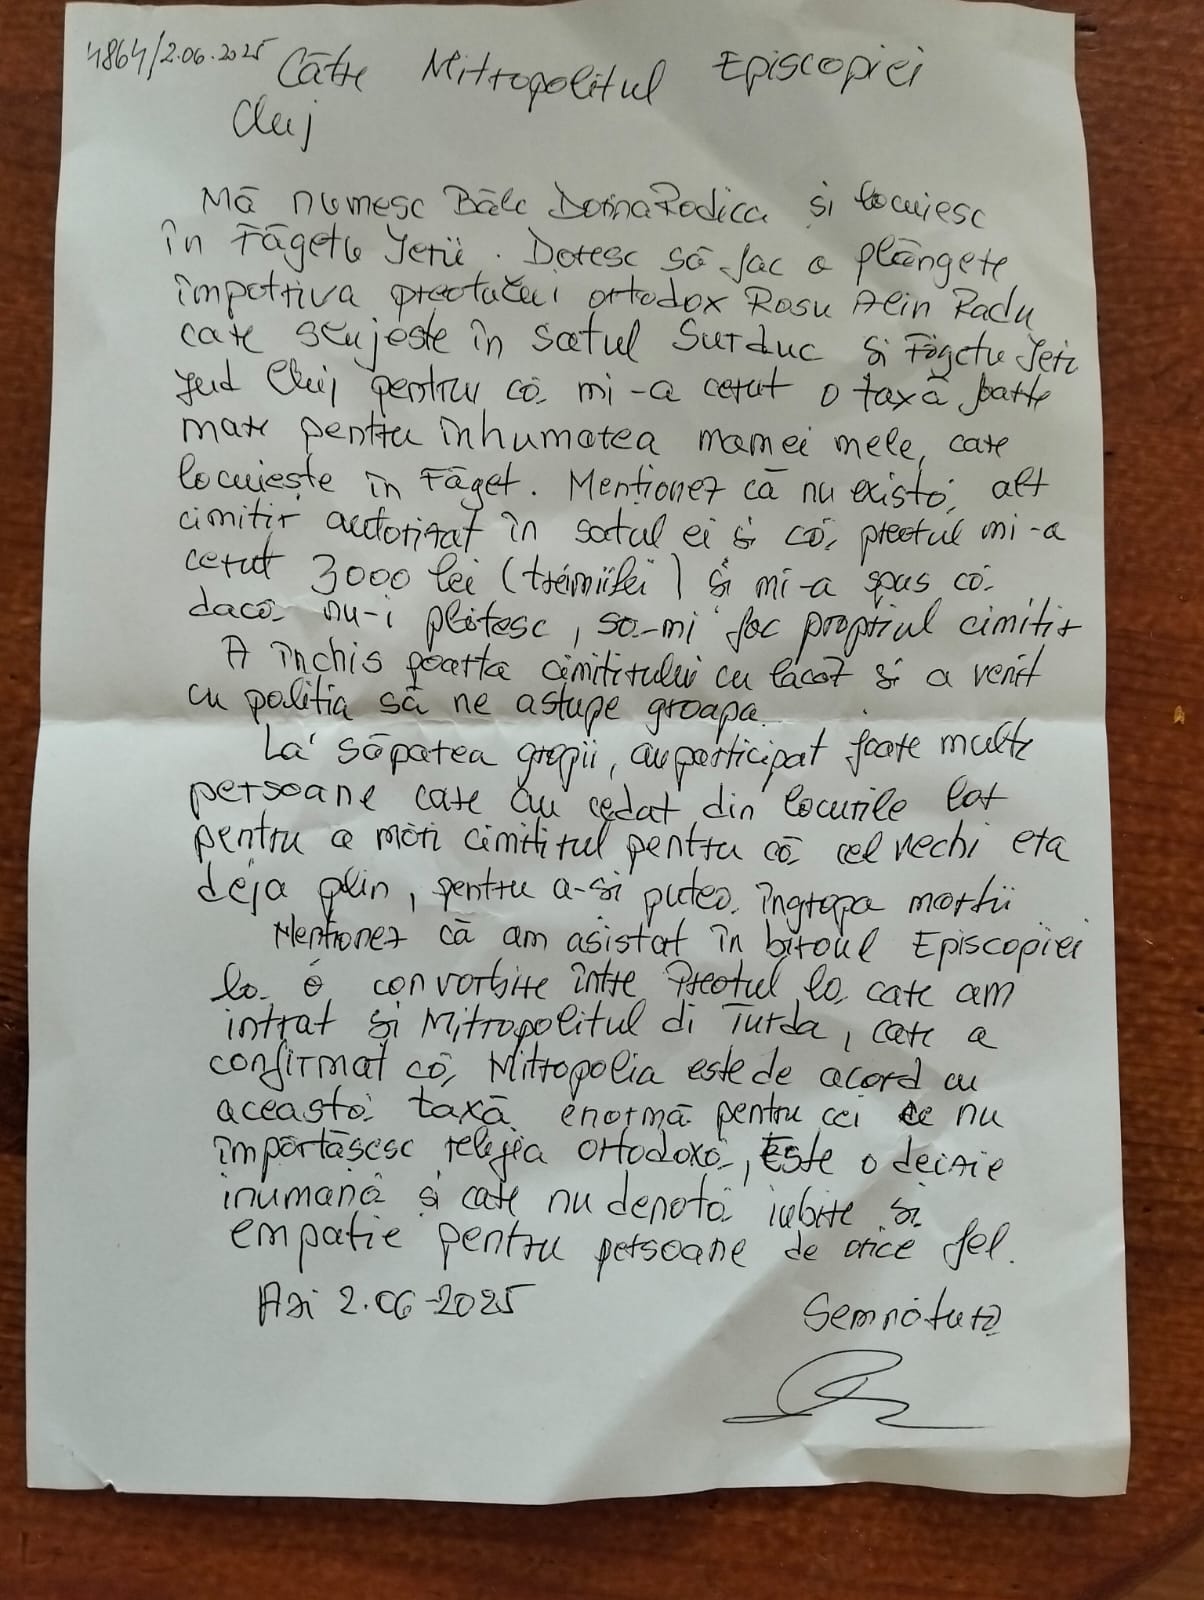 4864/2.06.2025 Către Mitropolitul Episcopiei
Cluj
Mă numesc Bâlc Dorina Rodica și locuiesc
în Făgetu Ierii. Doresc să fac o plângere
împotriva preotului ortodox Rosu Alin Radu
care slujeste în satul Surduc si Făgetu Ierii
jud Cluj pentru că mi-a cerut o taxă foarte
mare pentru înhumarea mamei mele, care
locuiește în Făget. Menționez că nu există alt
cimitir autorizat în satul ei si că preotul mi-a
cerut 3000 lei (treimiilei) și mi-a spus că
dacă nu-i plătesc, să-mi fac propriul cimitir
A închis poarta cimitirului cu lacăt si a venit
cu politia să ne astupe groapa
La săparea gropii, au participat foarte multe
persoane care au cedat din locurile lor
pentru a mări cimitirul pentru că cel vechi era
deja plin, pentru a-si putea îngropa mortii
Menționez că am asistat în biroul Episcopiei
la o convorbire între Preotul la care am
intrat și Mitropolitul di Turda, care a
confirmat că Mitropolia este de acord cu
această taxă enormă pentru cei ce nu
împărtășesc religia ortodoxă, Este o decizie
inumană și care nu denotă iubire si
empatie pentru persoane de orice fel.
Azi 2.06-2025 Semnătura